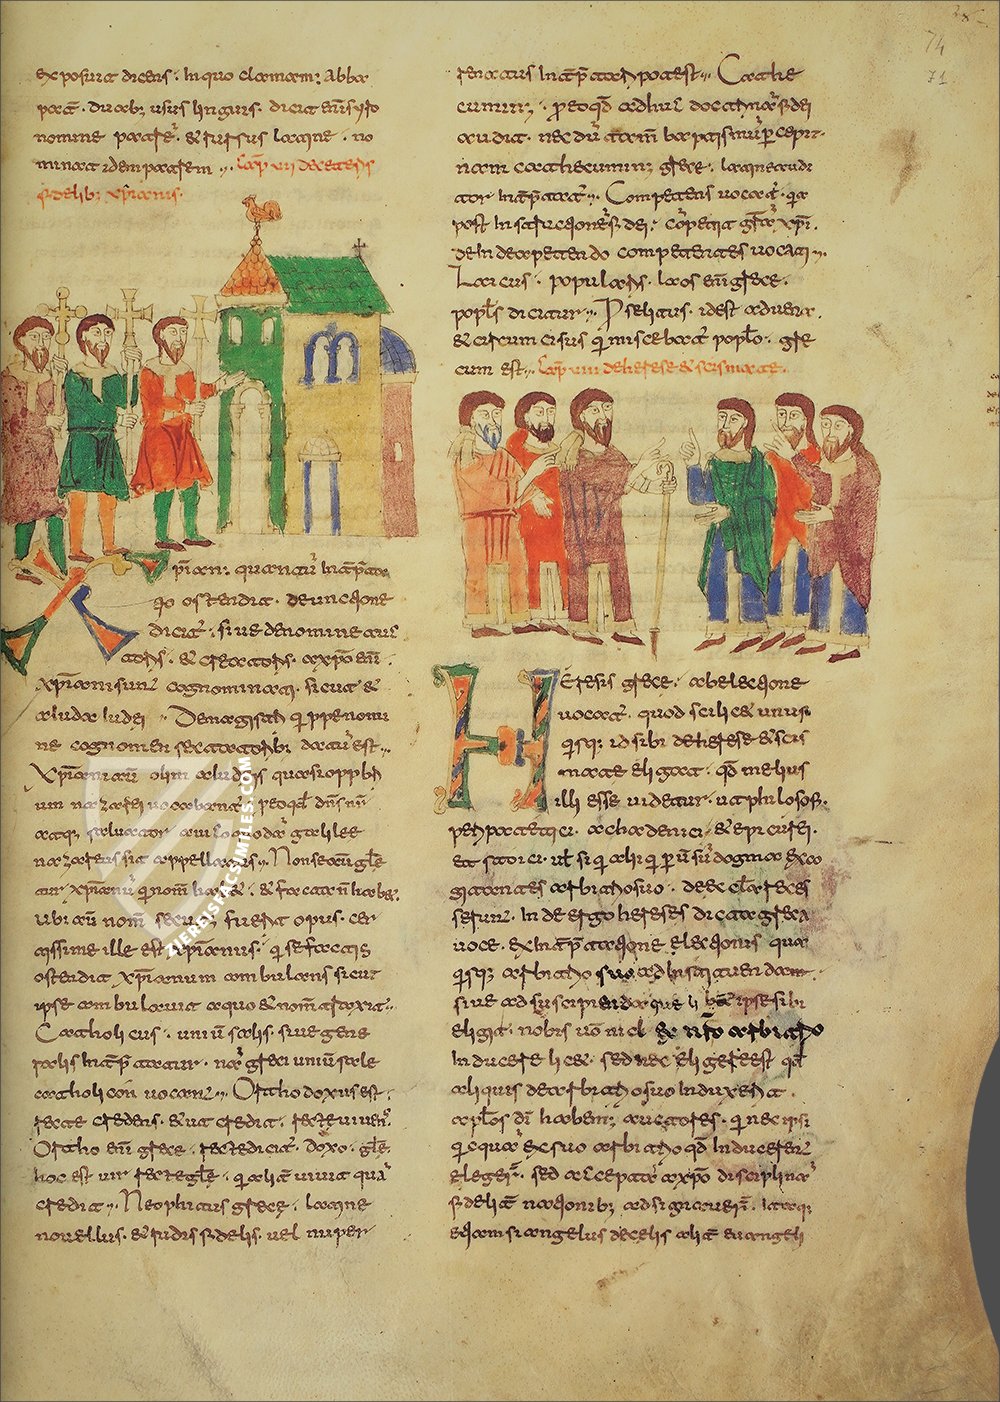 exposuit dicens. In quo clamamus abba
pater. duobus usus linguis. dicit enim syro
nomine patrem. & rursus latine. no
minat idem patrem. Cap vii de ceteris
fidelib; xpianis.
Xpianus quantum interpretatio
ostendit. de unctione
dicitur. sive de nomine auc
toris. & creatoris. a xpo enim
xpiani sunt cognominati. sicut &
a Iuda Iudei. De magistri quippe nomi
ne cognomen sectatorib; datum est.
Xpiani autem olim a Iudeis quasi opprobri
um nazarei vocabantur. pro eo quod dns nr
atq; salvator a vico quodam galilee
nazareus sit appellatus. Non se autem glorie
tur xpianum qui nomen habet. & facta non habet.
Ubi autem nomen secutum fuerit opus. cer
tissime ille est xpianus. qui se factis
ostendit xpianum ambulans sicut
ipse ambulavit a quo & nomen traxit.
Catholicus. universalis. sive gene
ralis interpretatur. nam greci universale
catholicon vocant. Orthodoxus est
recte credens. & ut credit. recte vivens.
Ortho enim grece. recte dicitur. doxo. glorie.
hoc est vir recte glorie. qui aliter vivit quam
credit. Neophitus grece. latine
novellus. & rudis fidelis. vel nuper
renatus interpretari potest. Cathe
cuminus. pro eo quod adhuc doctrinam fidei
audit. necdum tamen baptismum percepit.
nam cathecuminus grece. latine audi
tor interpretatur. Competens vocatur. quia
post instructionem fidei. competit gratiam xpi.
deinde a petendo competentes vocati.
Laicus. popularis. laos enim grece.
populus dicitur. Pselitus. id est advena.
& circumcisus qui miscebatur populo. gre
cum est. Cap viii de herese & scismate.
Heresis grece. ab electione
vocatur. quod scilicet unus
quisq; id sibi de herese & scis
mate eligat. quod melius
illi esse videtur. ut philosofi.
peripatetici. achademici. & epicurei.
& stoici. vel sicut alii qui perversum dogma exco
gitantes arbitrio suo. de ecclesia reces
serunt. Inde ergo hereses dicta greca
voce. ex interpretatione electionis qua
quisq; arbitrio suo ad instituendam
sive ad suscipienda que li ipse sibi
eligit. nobis vero nichil ex nro arbitrio
inducere licet. sed nec eligere est quod
aliquis de arbitrio suo induxerit.
aplos di habemus auctores. qui nec ipsi
quicquam ex suo arbitrio quod inducerent
elegerunt. sed acceptam a xpo disciplinam
fideliter nationib; adsignaverunt. Itaq;
etiam si angelus de celis aliter evangeli
74
71
ZIEREISFACSIMILES.COM